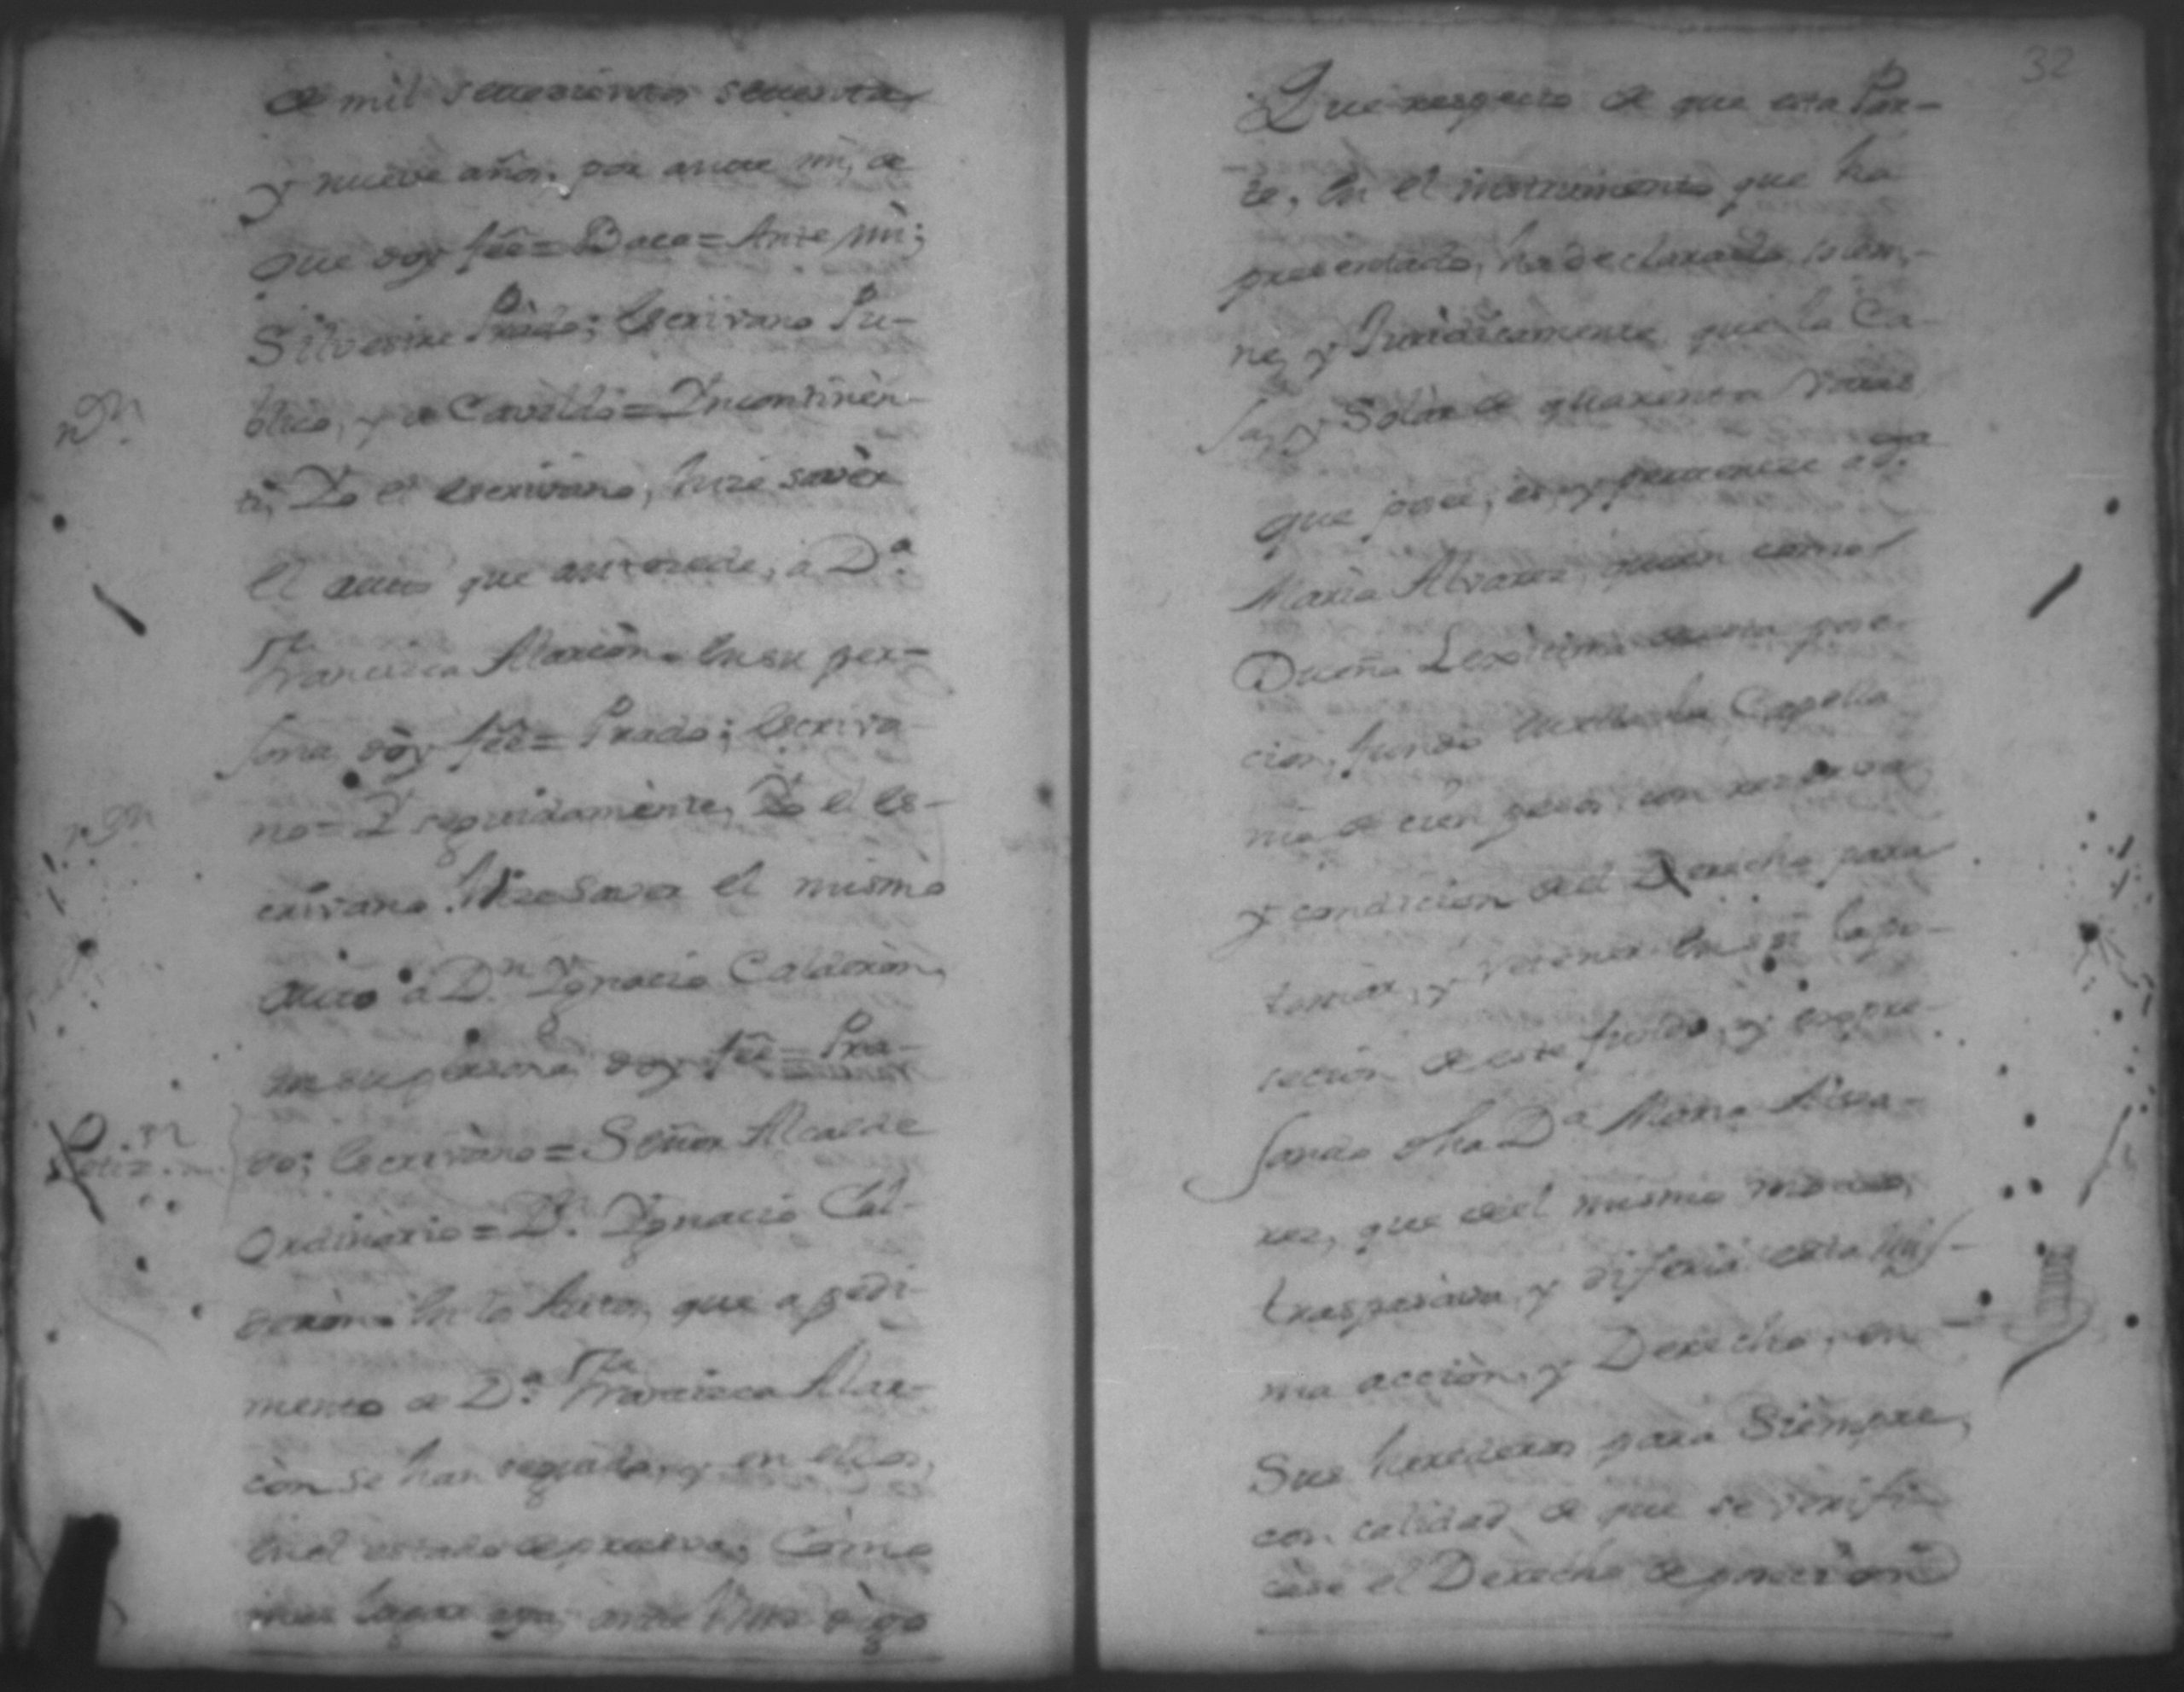 de mil setecientos setenta
y nueve años, por ante mi, de
que doy feê = Baca = Ante mi;
Silvestre Prado; Escrivano Pu-
blico, y de Cavildo = Yncontinèn-
ti, Yo el escrivano, hize savèr
el auto que antecede, a D.ª
Francisca Alarcòn en su per-
sona, dòy feê = Prado; escriva-
no = Y seguidamènte, Yo el es-
crivano hize saver el mismo
auto a D.n Ygnacio Calderòn,
en su persona doy feê = Pra-
do; escrivàno = Señor Alcalde
Ordinàrio = D.n Ygnacio Cal-
deròn en lo Autos, que a pedi-
mento de D.ª Francisca Alar-
còn se han seguido, y en ellos,
en el estado de prueva, Còmo
mas lugar aya, ante Vmd digo
n.on
n.on
Petiz.on
32
Que respecto de que esta Par-
te, en el instrumento que ha
presentado, ha declarado
ne, y Juridicamente que la Ca-
sa, y Solàr de quarenta Varas
que posee, es, y pertenece a D.ª
Marìa Alvarez, quien como
Dueña Lexitima de esta pose-
cion, fundò en ella la Capella-
nia de cien pesos, con reserva
y condicion del Derecho para
tomar, y retener en si la po-
secion de este fundo, y expre-
sando dha D.ª Maria Alva-
rez, que del mismo modo,
traspasava, y diferia esta mis-
ma acciòn, y Derecho, en
Sus herederos para Siempre,
con calidad de que se verifi-
case el Derecho de poseciòn